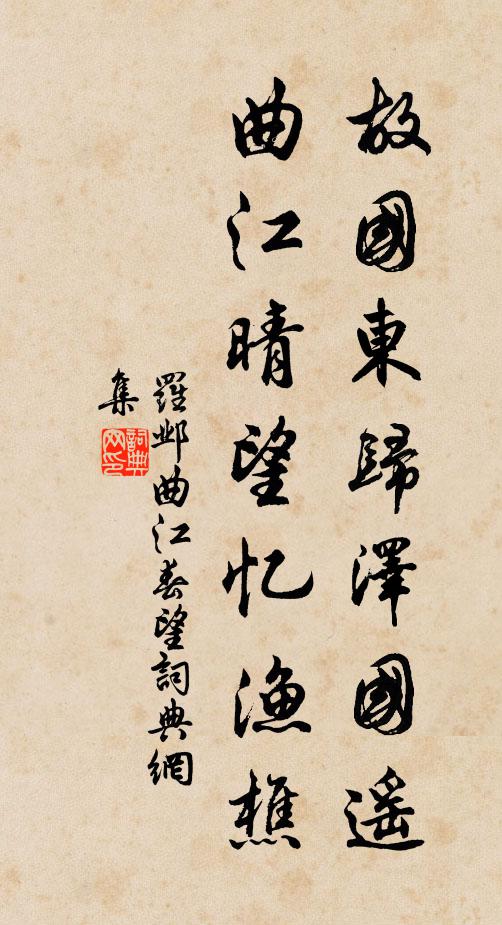 故國東歸澤國遥
曲江晴望忆渔樵
羅邺曲江春望詞典網
集
詞典
网印